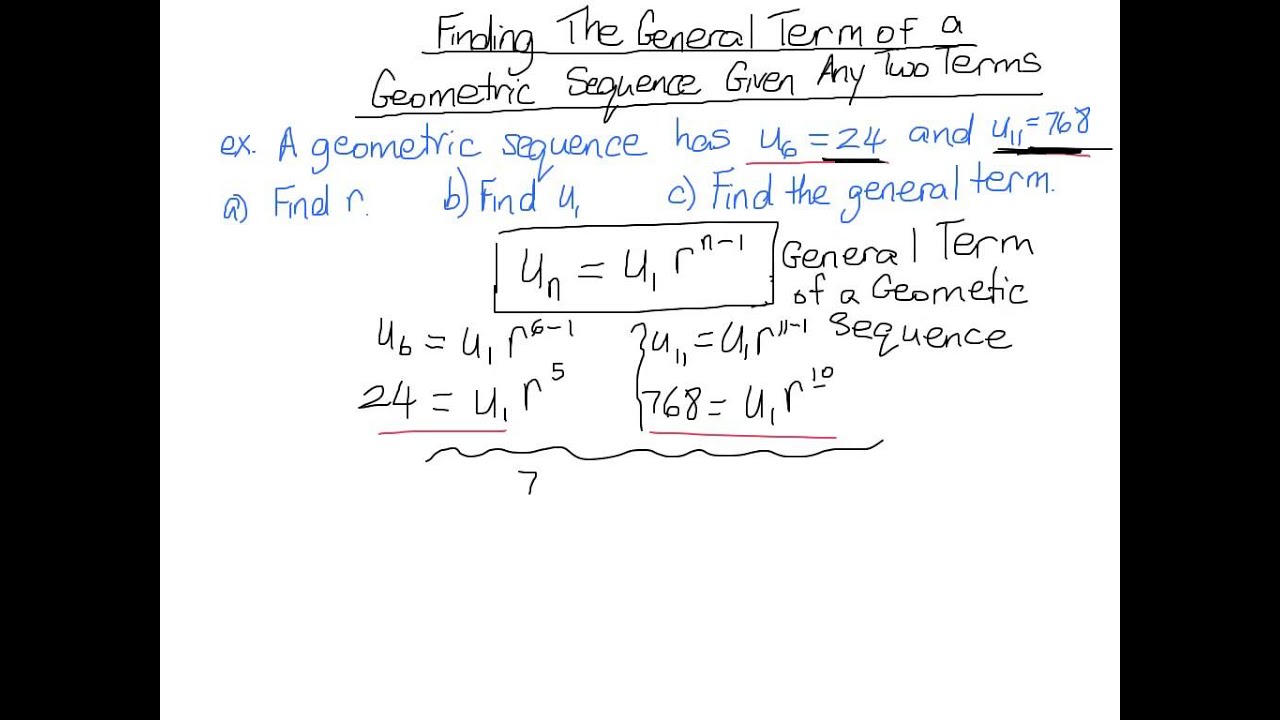 Finding The General Term of a
Geometric Sequence Given Any Two Terms
ex. A geometric sequence has u₆ = 24 and u₁₁ = 768
a) Find r. b) Find u₁ c) Find the general term.
uₙ = u₁ rⁿ⁻¹ General Term
of a Geometic
Sequence
u₆ = u₁ r⁶⁻¹ } u₁₁ = u₁ r¹¹⁻¹
24 = u₁ r⁵ 768 = u₁ r¹⁰
7